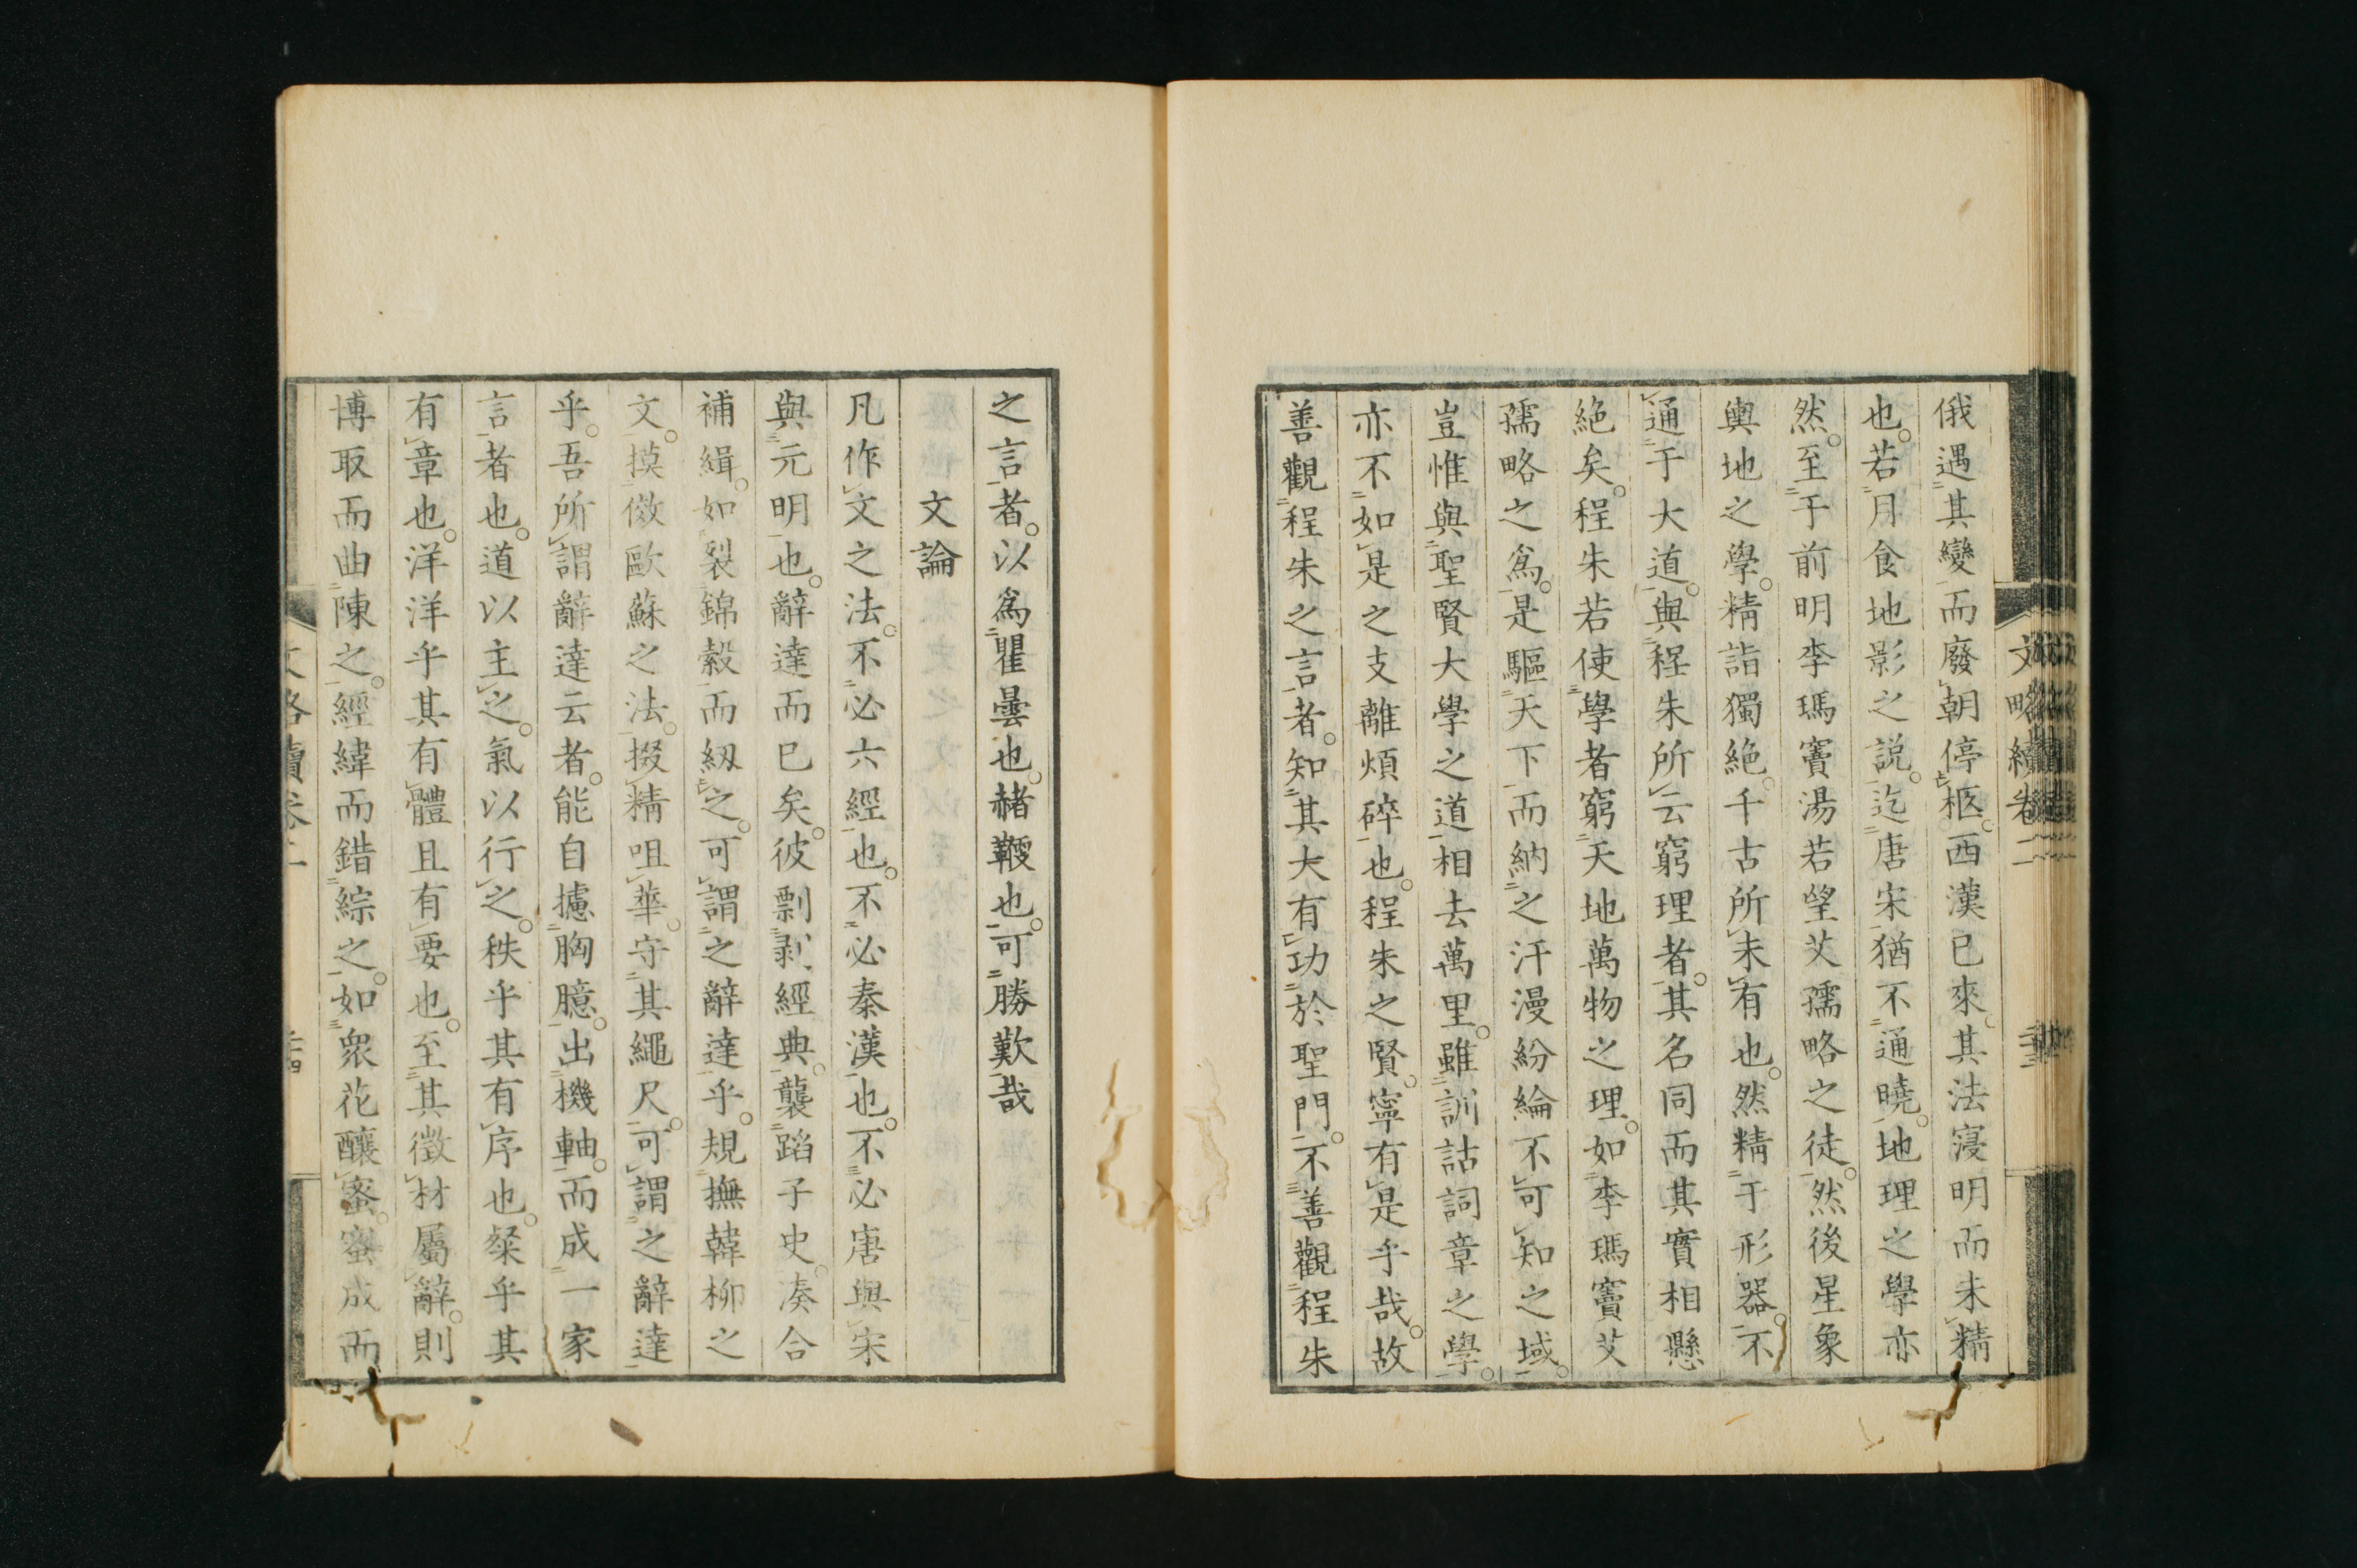 俄遇其變而廢朝停柩。西漢已來。其法寖明而未精
也。若月食地影之說。迄唐宋猶不通曉。地理之學亦
然。至于前明李瑪竇湯若望艾孺略之徒。然後星象
輿地之學。精詣獨絶。千古所未有也。然精于形器。不
通于大道。與程朱所云窮理者。其名同而其實相懸
絶矣。程朱若使學者窮天地萬物之理。如李瑪竇艾
孺略之爲。是驅天下而納之汗漫紛綸不可知之域。
豈惟與聖賢大學之道相去萬里。雖訓詁詞章之學。
亦不如是之支離煩碎也。程朱之賢。寧有是乎哉。故
善觀程朱之言者。知其大有功於聖門。不善觀程朱
文略續卷二
之言者。以爲瞿曇也。赭鞭也。可勝歎哉
文論
凡作文之法。不必六經也。不必秦漢也。不必唐與宋
與元明也。辭達而已矣。彼剽剥經典。襲蹈子史。湊合
補緝。如裂錦縠而紉之。可謂之辭達乎。規撫韓柳之
文。摸倣歐蘇之法。掇精咀華。守其繩尺。可謂之辭達
乎。吾所謂辭達云者。能自攄胸臆。出機軸。而成一家
言者也。道以主之。氣以行之。秩乎其有序也。粲乎其
有章也。洋洋乎其有體且有要也。至其徵材屬辭。則
博取而曲陳之。經緯而錯綜之。如衆花釀蜜。蜜成而
文略續卷二
二十四